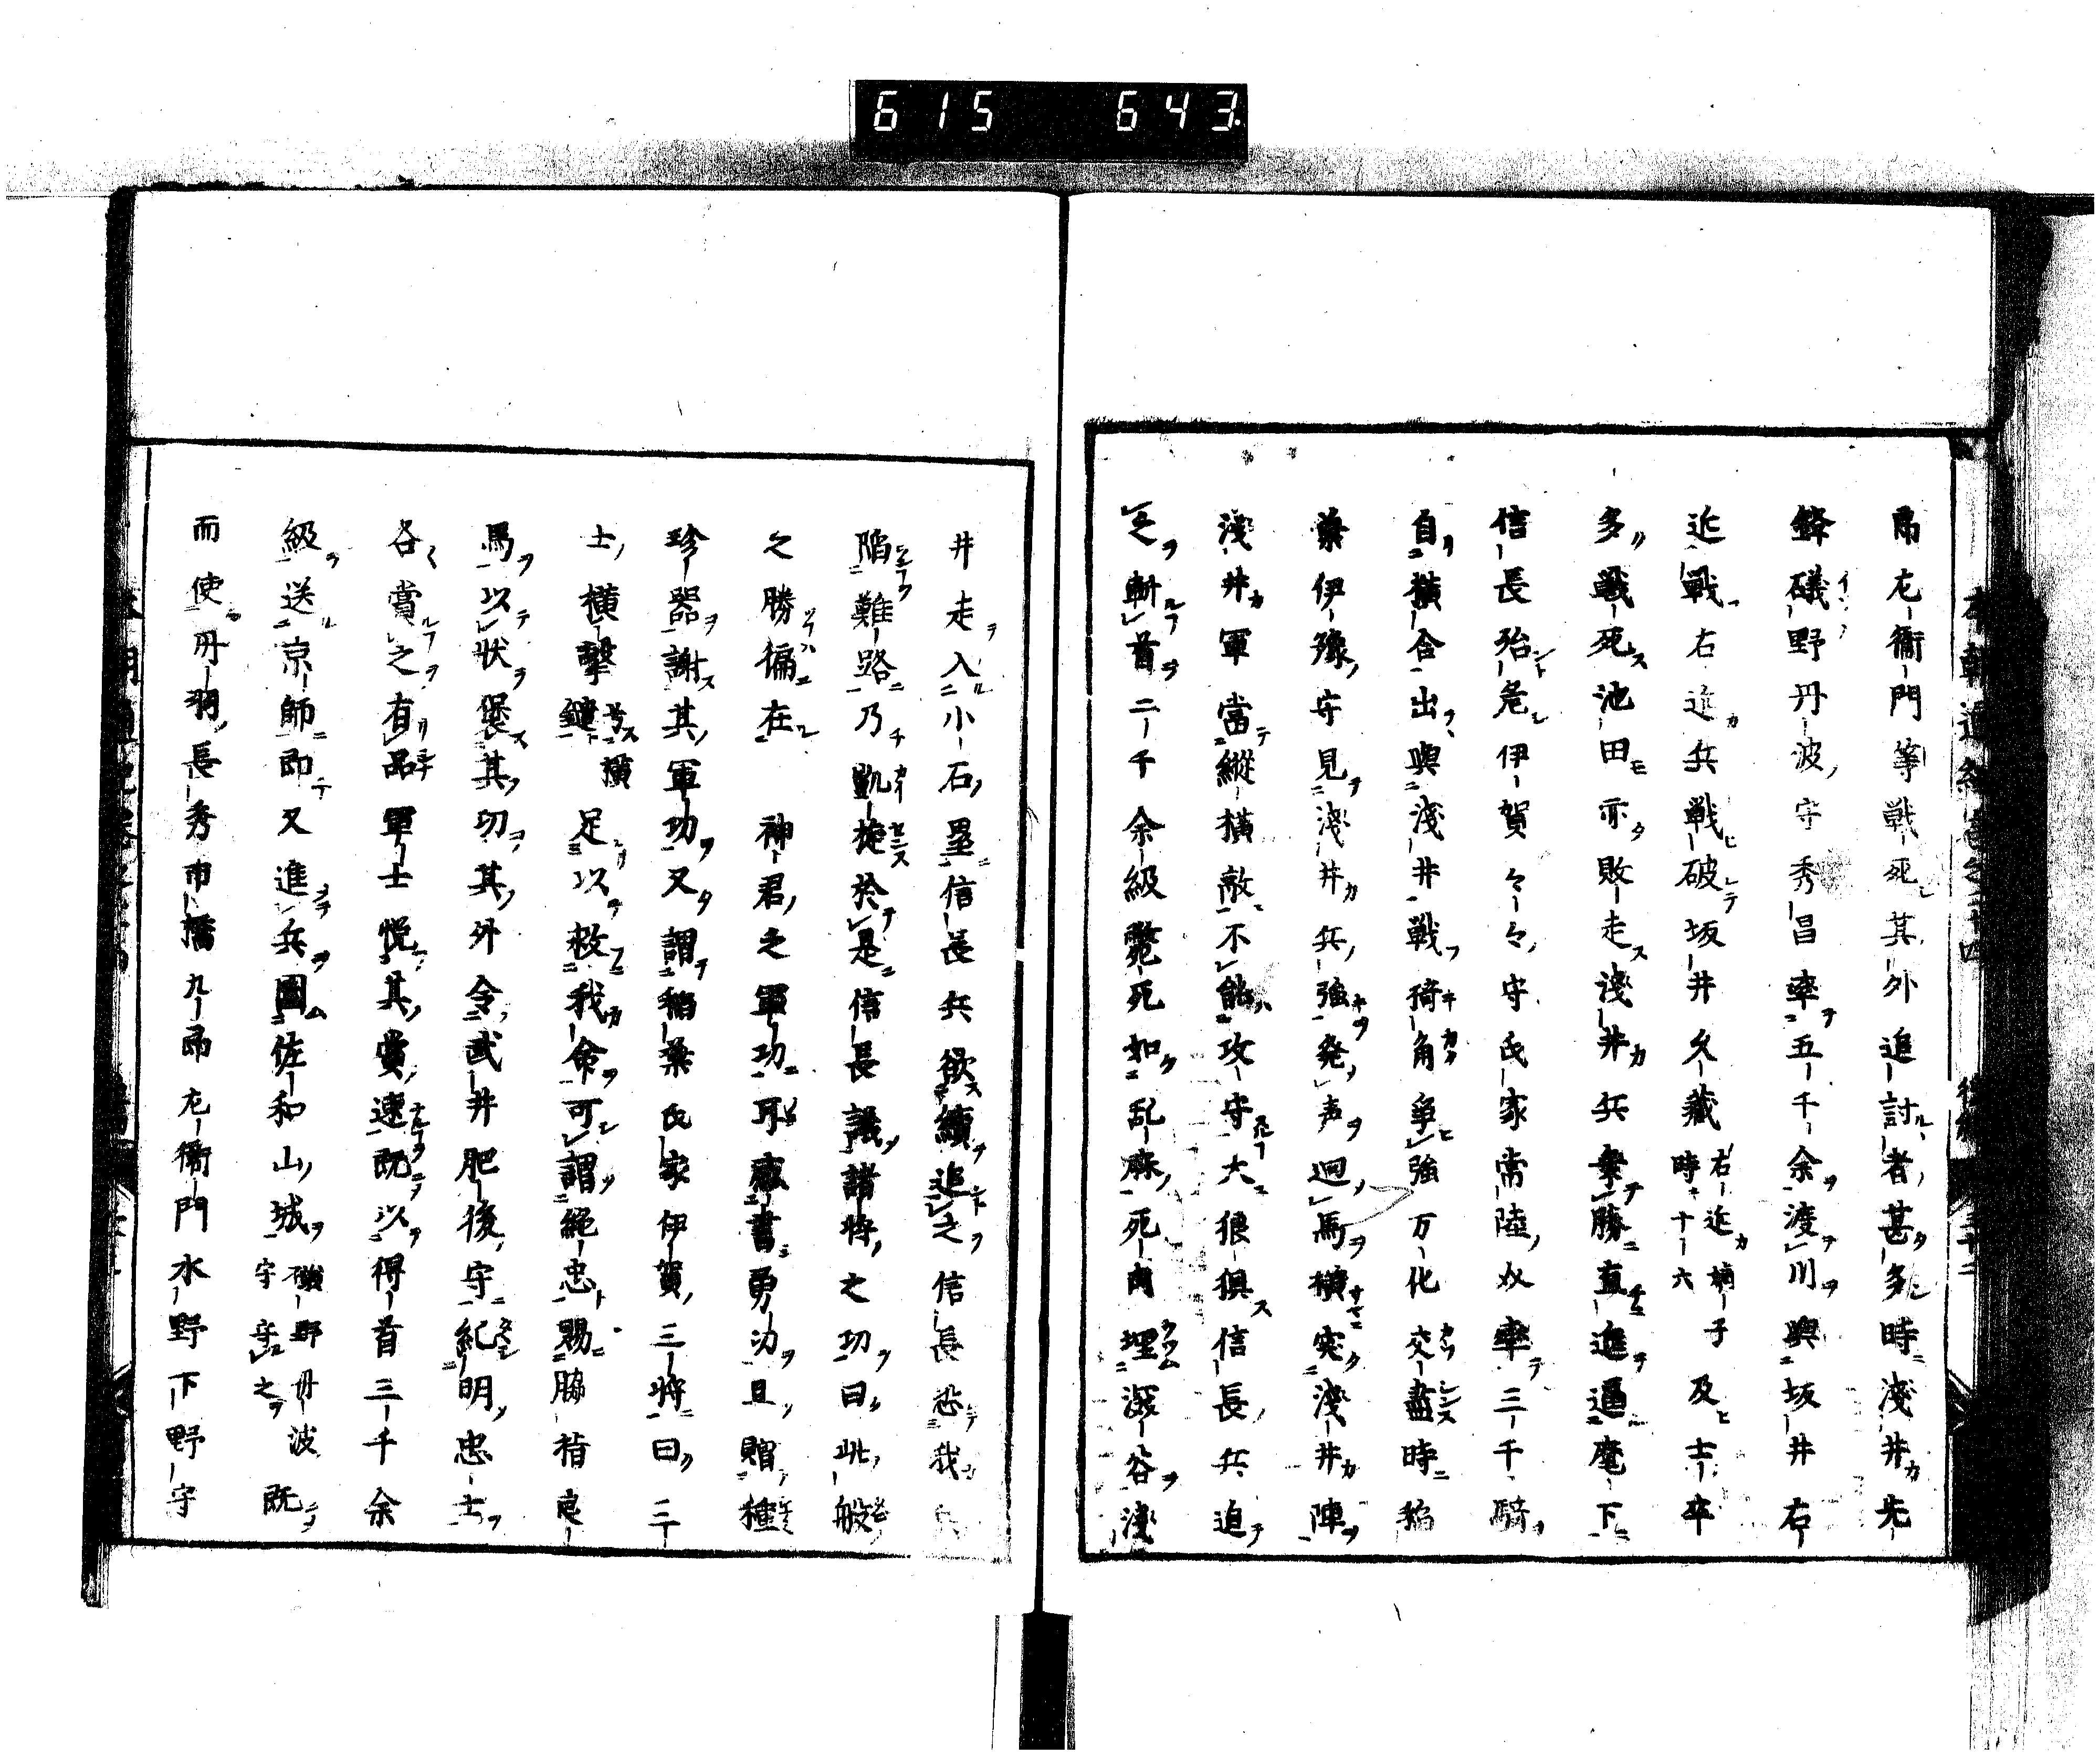 615 643
郎左衞門等戰死其外追討者甚多時淺井先
鋒礒野丹波守秀昌率五千余渡川與坂井右
近戰右近兵戰破坂井久藏右近嫡子時十六及士卒
多戰死池田亦敗走淺井兵乗勝直進逼麾下
信長殆危伊賀々々守氏家常陸𠆢率三千騎
自横合出與淺井戰掎角争強万化交盡時稲
葉伊豫守見淺井兵強発声迴馬横突淺井陣
淺井軍當縱横敵不能攻守大狼狽信長兵追
之斬首二千余級斃死如乱麻死肉埋深谷淺
井走入小石壘信長兵欲續追之信長恐我兵
陷難路乃凱旋於是信長議諸将之功曰此般
之勝偏在 神君之軍功耳感書勇功且贈種
珍器謝其軍功又謂稲葉氏家伊賀三将曰三
士横擊鑓横足以救我命可謂絶忠賜脇指良
馬以状褒其功其外令武井肥後守紀明忠士
各賞之有品軍士悦其賞速既以得首三千余
級送京師即又進兵圍佐和山城礒野丹波守守之既
而使丹羽長秀市橋九郎左衞門水野下野守